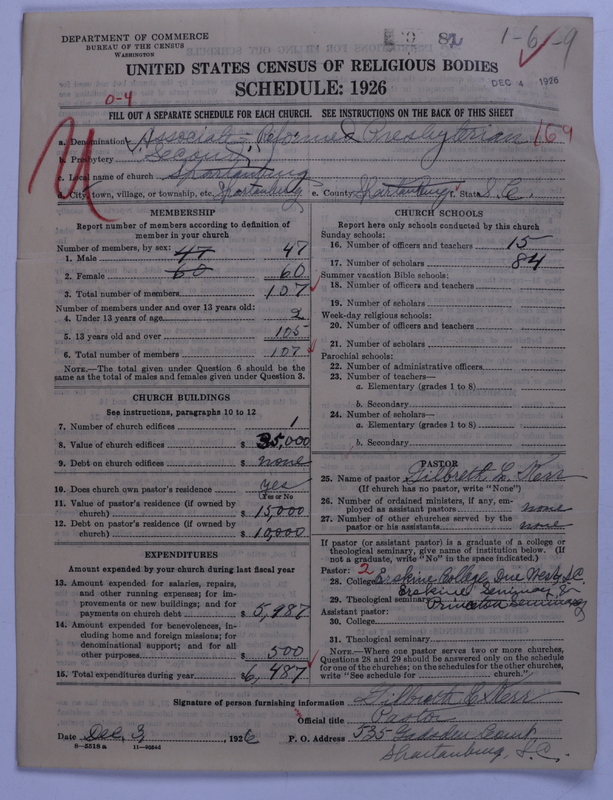 DEPARTMENT OF COMMERCE
BUREAU OF THE CENSUS
WASHINGTON
1-6-9
DEC 4 1926
UNITED STATES CENSUS OF RELIGIOUS BODIES
SCHEDULE: 1926
0-4
FILL OUT A SEPARATE SCHEDULE FOR EACH CHURCH. SEE INSTRUCTIONS ON THE BACK OF THIS SHEET
a. Denomination Associate-Reformed Presbyterian 169
b. Presbytery Second
c. Local name of church Spartanburg
d. City, town, village, or township, etc. Spartanburg e. County Spartanburg f. State S.C.
MEMBERSHIP
Report number of members according to definition of member in your church
Number of members, by sex:
1. Male 47 47
2. Female 60 60
3. Total number of members 107
Number of members under and over 13 years old:
4. Under 13 years of age 2
5. 13 years old and over 105
6. Total number of members 107
NOTE.—The total given under Question 6 should be the same as the total of males and females given under Question 3.
CHURCH BUILDINGS
See instructions, paragraphs 10 to 12
7. Number of church edifices 1
8. Value of church edifices $ 35,000
9. Debt on church edifices $ none
10. Does church own pastor's residence yes
Yes or No
11. Value of pastor's residence (if owned by church) $ 15,000
12. Debt on pastor's residence (if owned by church) $ 10,000
EXPENDITURES
Amount expended by church during last fiscal year
13. Amount expended for salaries, repairs, and other running expenses; for improvements or new buildings; and for payments on church debt $ 5,987
14. Amount expended for benevolences, including home and foreign missions; for denominational support; and for all other purposes $ 500
15. Total expenditures during year $ 6,487
CHURCH SCHOOLS
Report here only schools conducted by this church
Sunday schools:
16. Number of officers and teachers 15
17. Number of scholars 84
Summer vacation Bible schools:
18. Number of officers and teachers
19. Number of scholars
Week-day religious schools:
20. Number of officers and teachers
21. Number of scholars
Parochial schools:
22. Number of administrative officers
23. Number of teachers—
a. Elementary (grades 1 to 8)
b. Secondary
24. Number of scholars—
a. Elementary (grades 1 to 8)
b. Secondary
PASTOR
25. Name of pastor Gilbreth L. Kerr
(If church has no pastor, write "None")
26. Number of ordained ministers, if any, employed as assistant pastors none
27. Number of other churches served by the pastor or his assistants none
If pastor (or assistant pastor) is a graduate of a college or theological seminary, give name of institution below. (If not a graduate, write "No" in the space indicated.)
Pastor: 2
28. College Erskine College, Due West, S.C.
29. Theological seminary Erskine Seminary &
Princeton Seminary
Assistant pastor:
30. College
31. Theological seminary
NOTE.—Where one pastor serves two or more churches, Questions 28 and 29 should be answered only on the schedule for one of the churches; on the schedules for the other churches, write "See schedule for church."
Signature of person furnishing information Gilbreth L. Kerr
Official title Pastor
Date Dec. 3, 1926 P. O. Address 535 Gadsden Court,
Spartanburg, S.C.
8-5518a